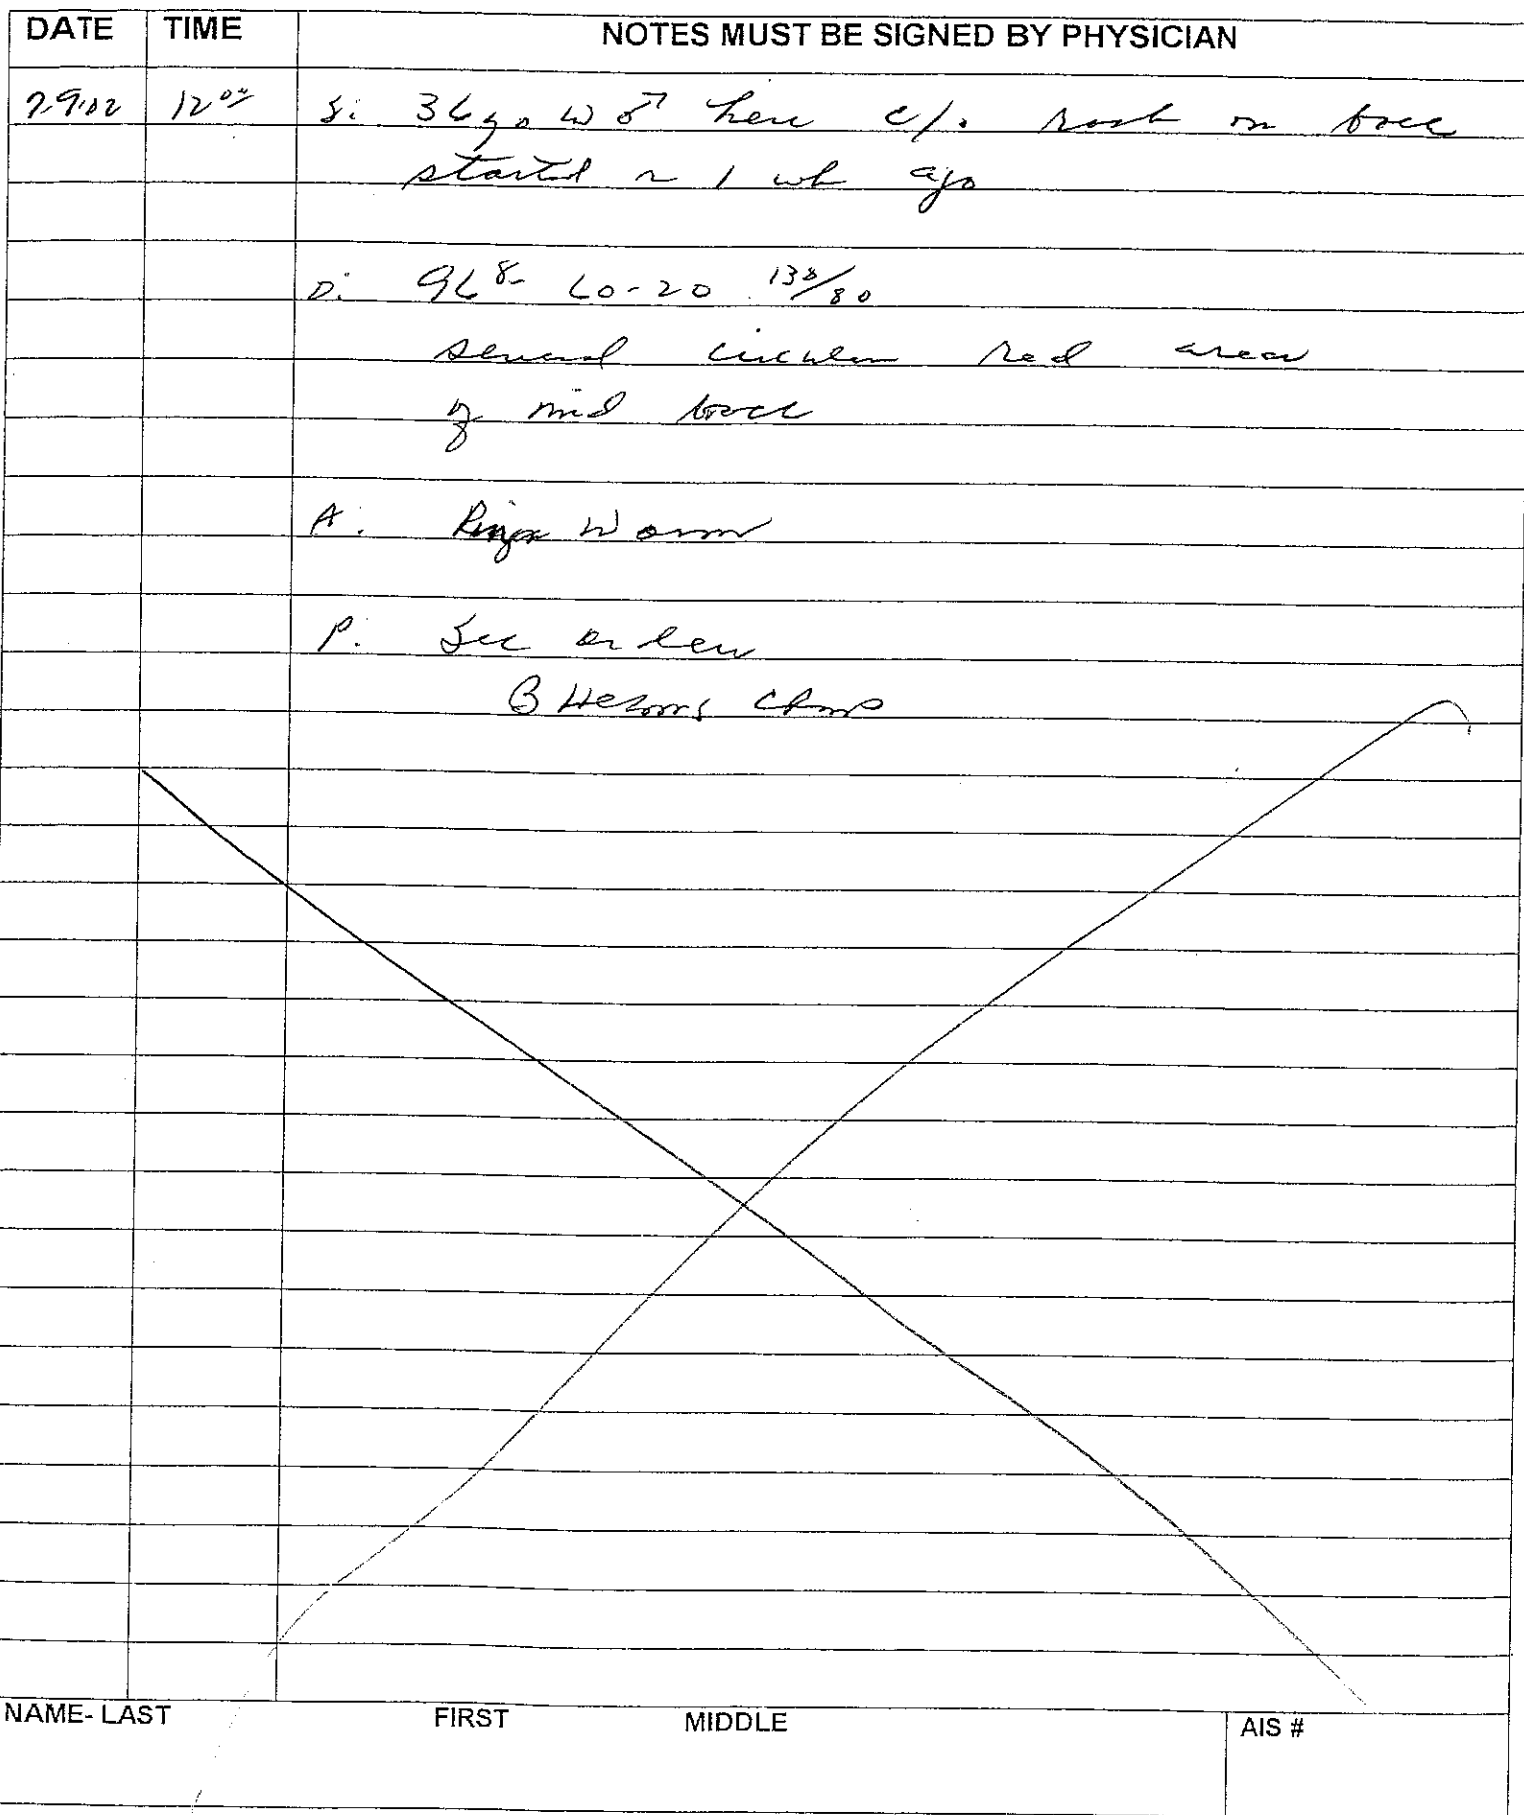 DATE TIME NOTES MUST BE SIGNED BY PHYSICIAN
7.9.02 12⁰⁰ S: 36 yo w ♂ here c/o rash on back
started ~ 1 wk ago
O: 96⁸- 60-20 130/80
several circular red areas
of mid back
A: Ring Worm
P: See orders
B CRNP
NAME- LAST FIRST MIDDLE AIS #